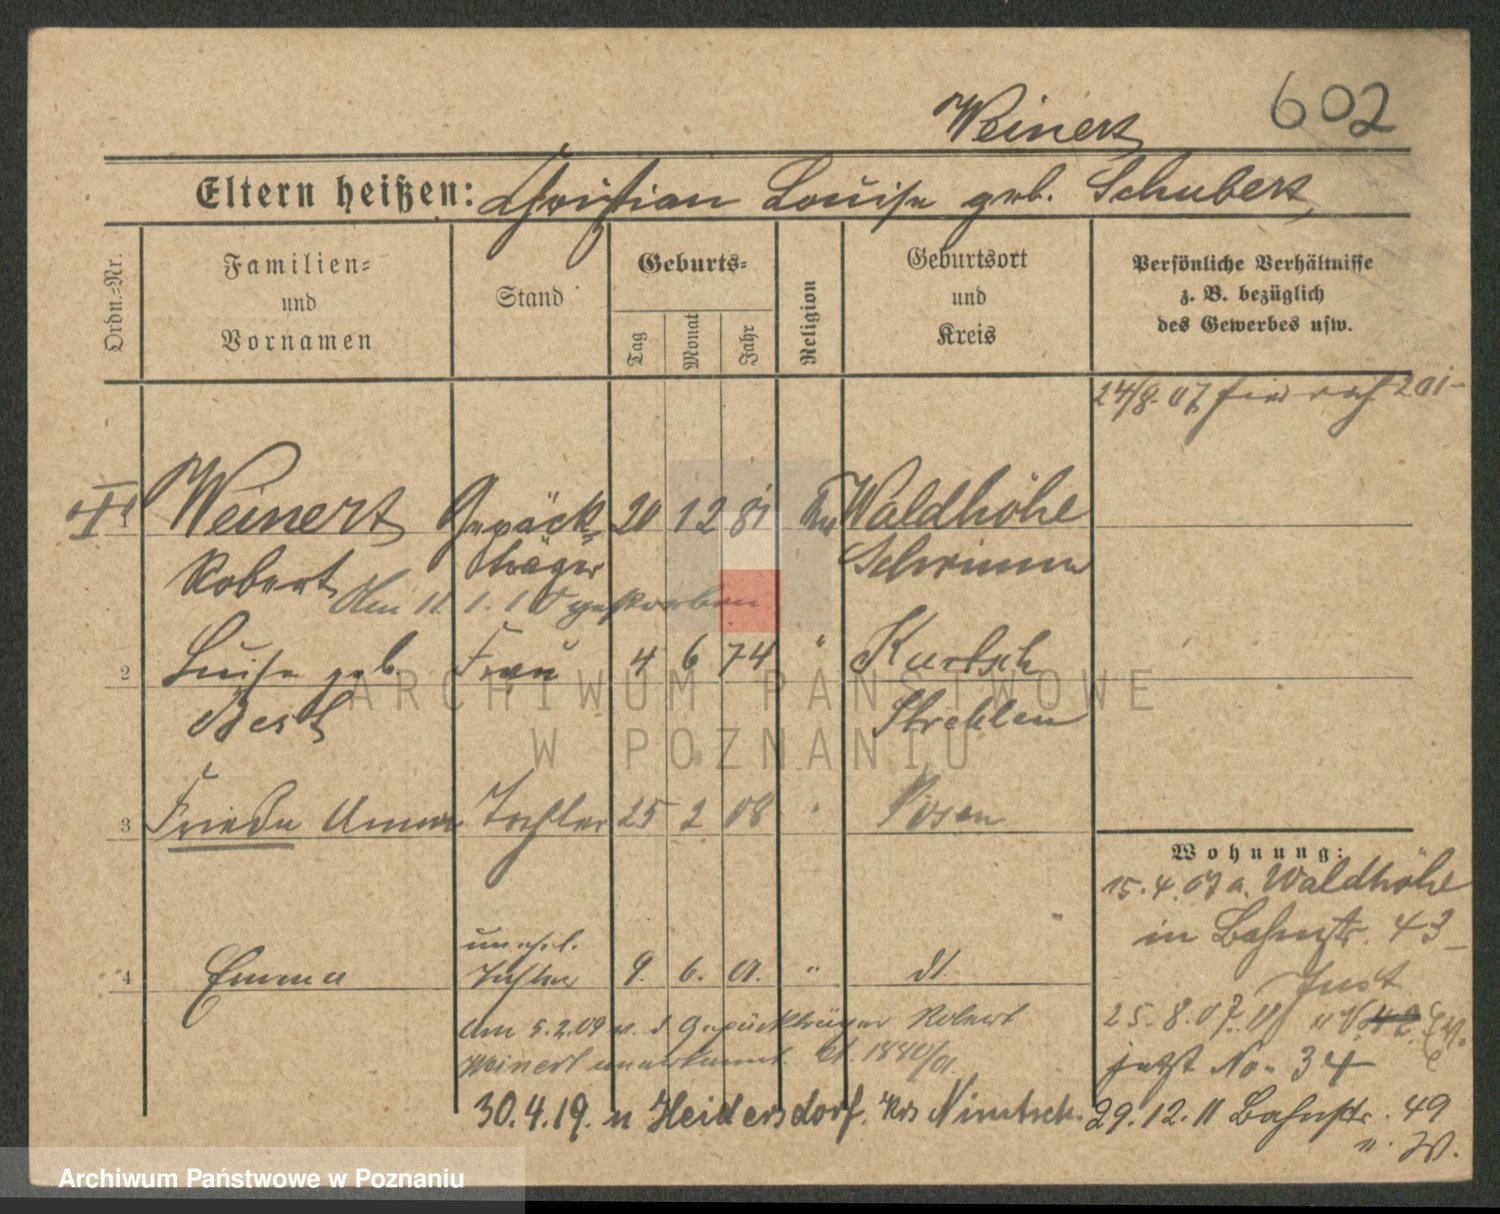 602
Weinert
Eltern heißen: Christian Louise geb. Schubert
Ordn.-Nr.
Familien-
und
Vornamen
Stand
Geburts-
Tag
Monat
Jahr
Religion
Geburtsort
und
Kreis
Persönliche Verhältnisse
z. B. bezüglich
des Gewerbes usw.
24/8. 07
1 Weinert Gepäck- 20 12 81 Waldhöhe
Robert träger Schrimm
Am 11. 1. gestorben
2 Luise geb Frau 4 6 74 " Kurtsch
Best Strehlen
3 Frieda Anna Tochter 25 2 08 " Posen
4 Emma unehel. Tochter 9. 6. 01. " dt.
Am 5.2.09 v. d Gepäckträger Robert
Weinert anerkannt. 1880/01.
30.4.19. n Heidersdorf. Krs Nimtsch.
Wohnung:
15.4.07 a. Waldhöhe
in Bahnstr. 43
25.8.07.
jetzt No. 34
29.12.11 Bahnstr. 49
n. W.
ARCHIWUM PAŃSTWOWE
W POZNANIU
Archiwum Państwowe w Poznaniu